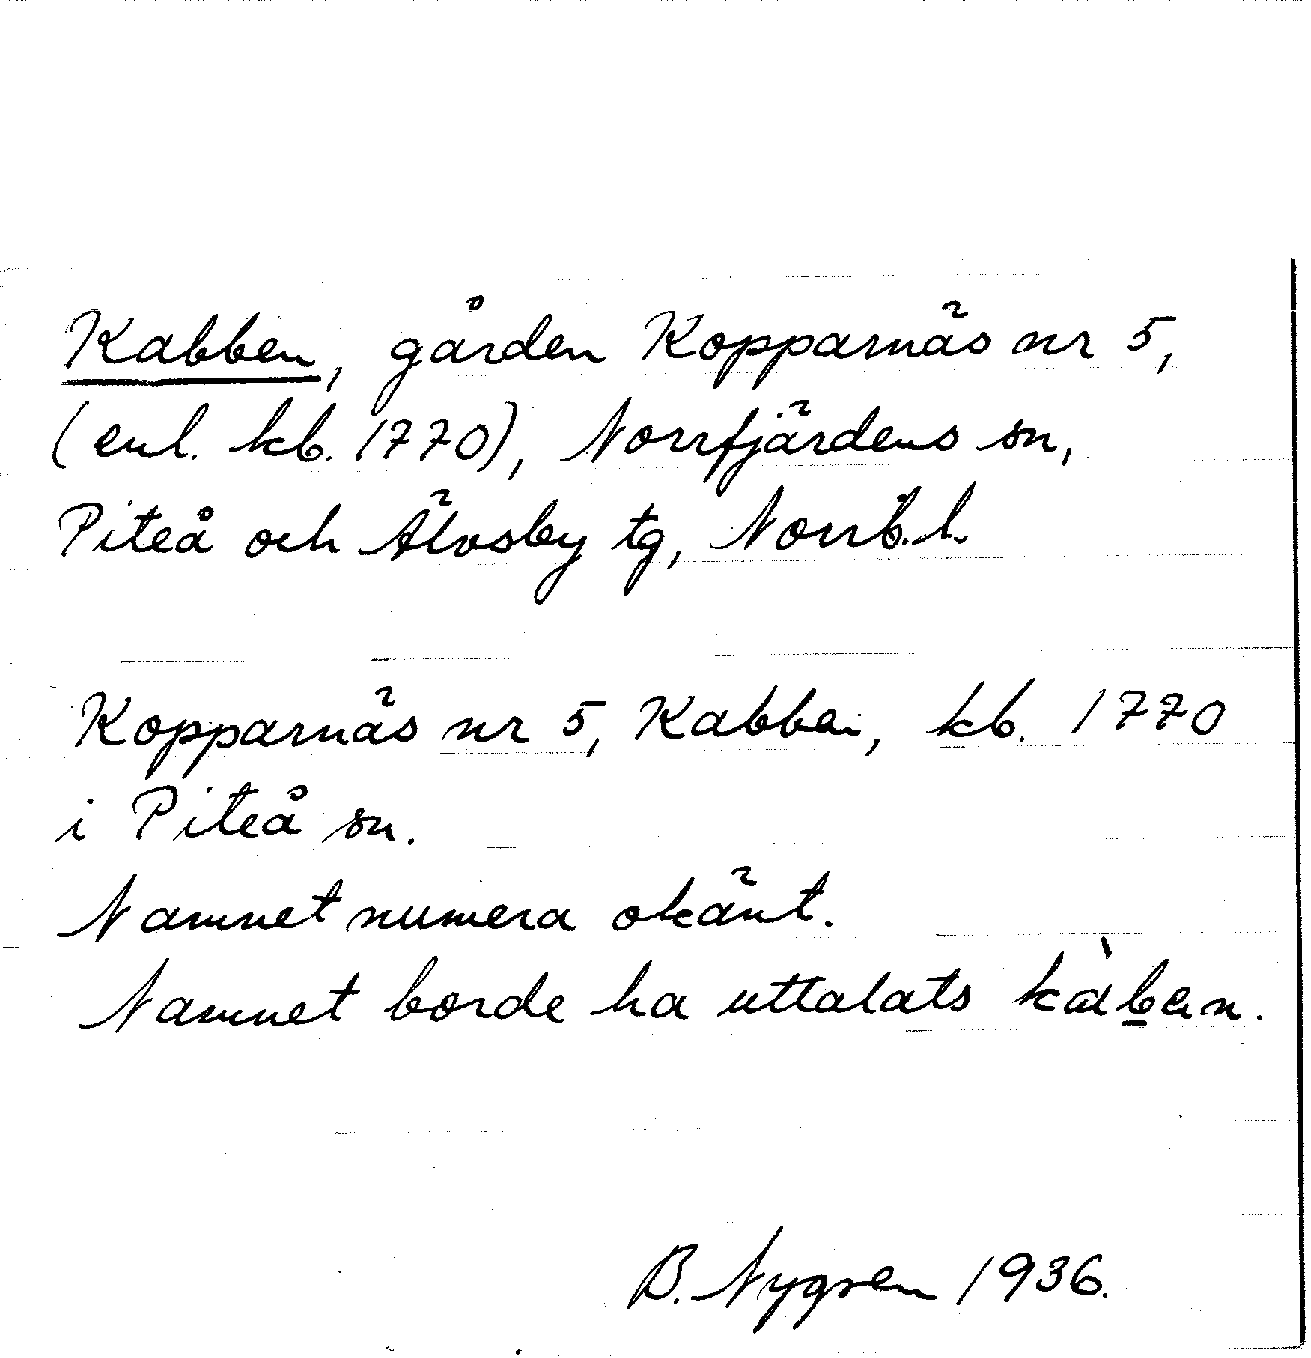 Kabben, gården Kopparnäs nr 5,
(enl. kb. 1770), Norrfjärdens sn,
Piteå och Älvsby tg, Norrb. l.
Kopparnäs nr 5, Kabben, kb. 1770
i Piteå sn.
Namnet numera okänt.
Namnet borde ha uttalats kàb̲en.
B. Nygren 1936.